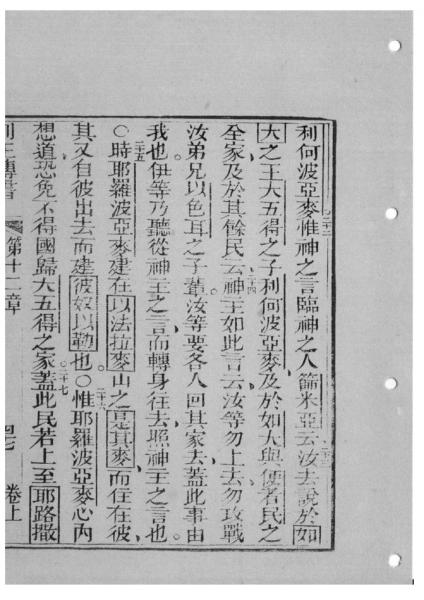 利何波亞麥二十二惟神之言臨神之人篩米亞云二十三汝去說於如
大之王大五得之子利何波亞麥及於如大與便者民之
全家及於其餘民云二十四神王如此言云汝等勿上去勿攻戰
汝弟兄以色耳之子輩汝等要各人回其家去蓋此事由
我也。伊等乃聽從神王之言而轉身往去照神王之言也。
二十五○時耶羅波亞麥建在以法拉麥山之是其麥而住在彼
其又自彼出去而建彼奴以勒也。二十六○惟耶羅波亞麥心內
想道恐免不得國歸大五得之家。二十七蓋此民若上至耶路撒
列王傳書 第十二章 卷上